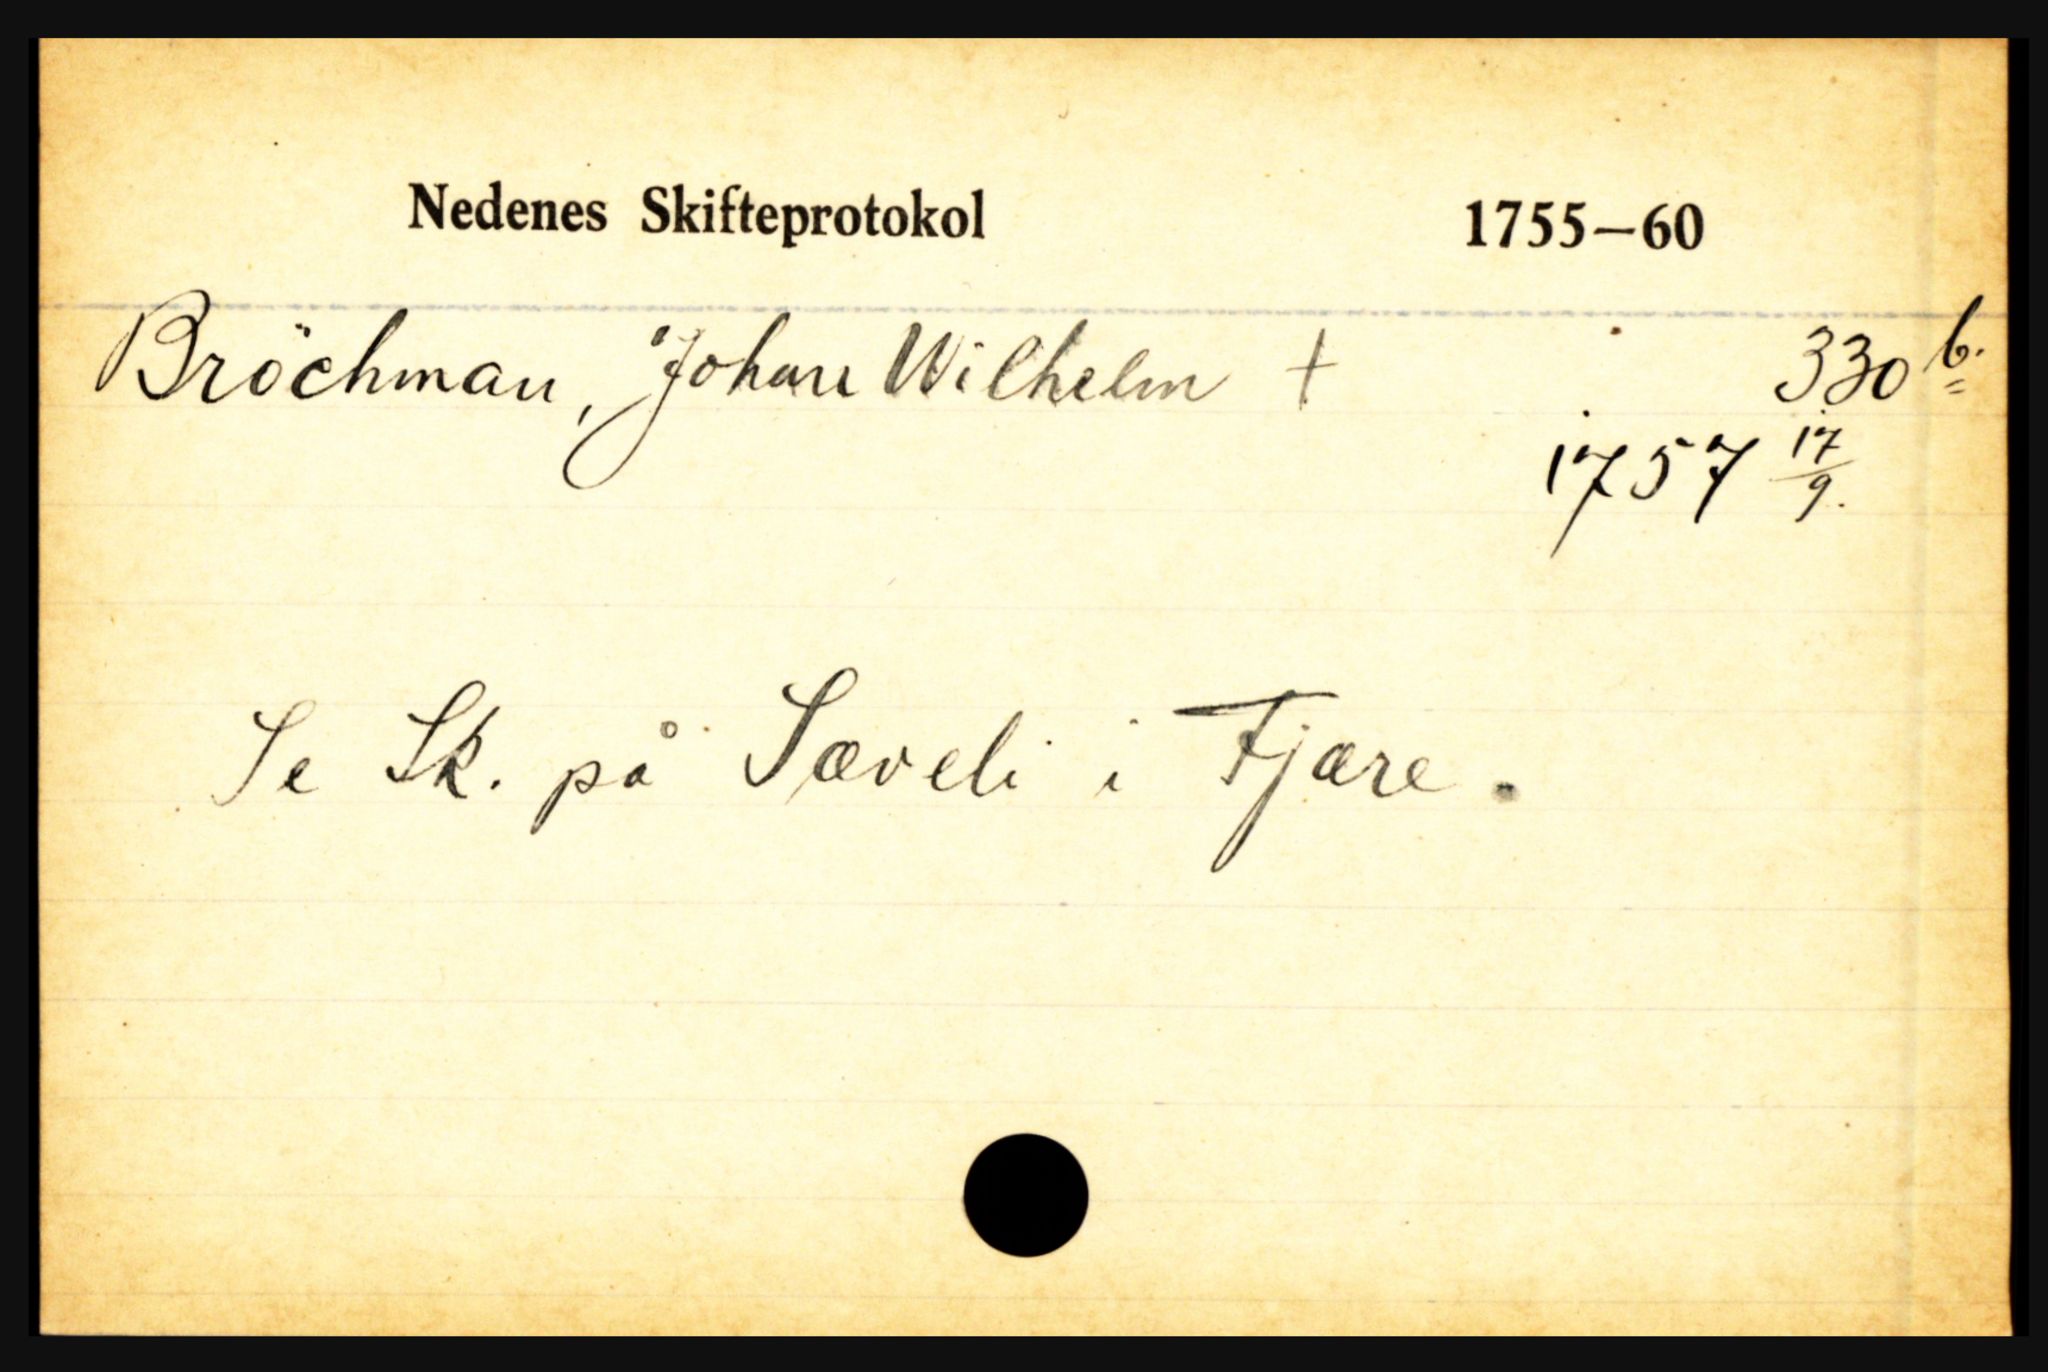 Nedenes Skifteprotokol 1755—60
Bröchman, Johan Wilhelm † 330 b.
1757 17/9.
Se Sk. på Sæveli i Fjære.